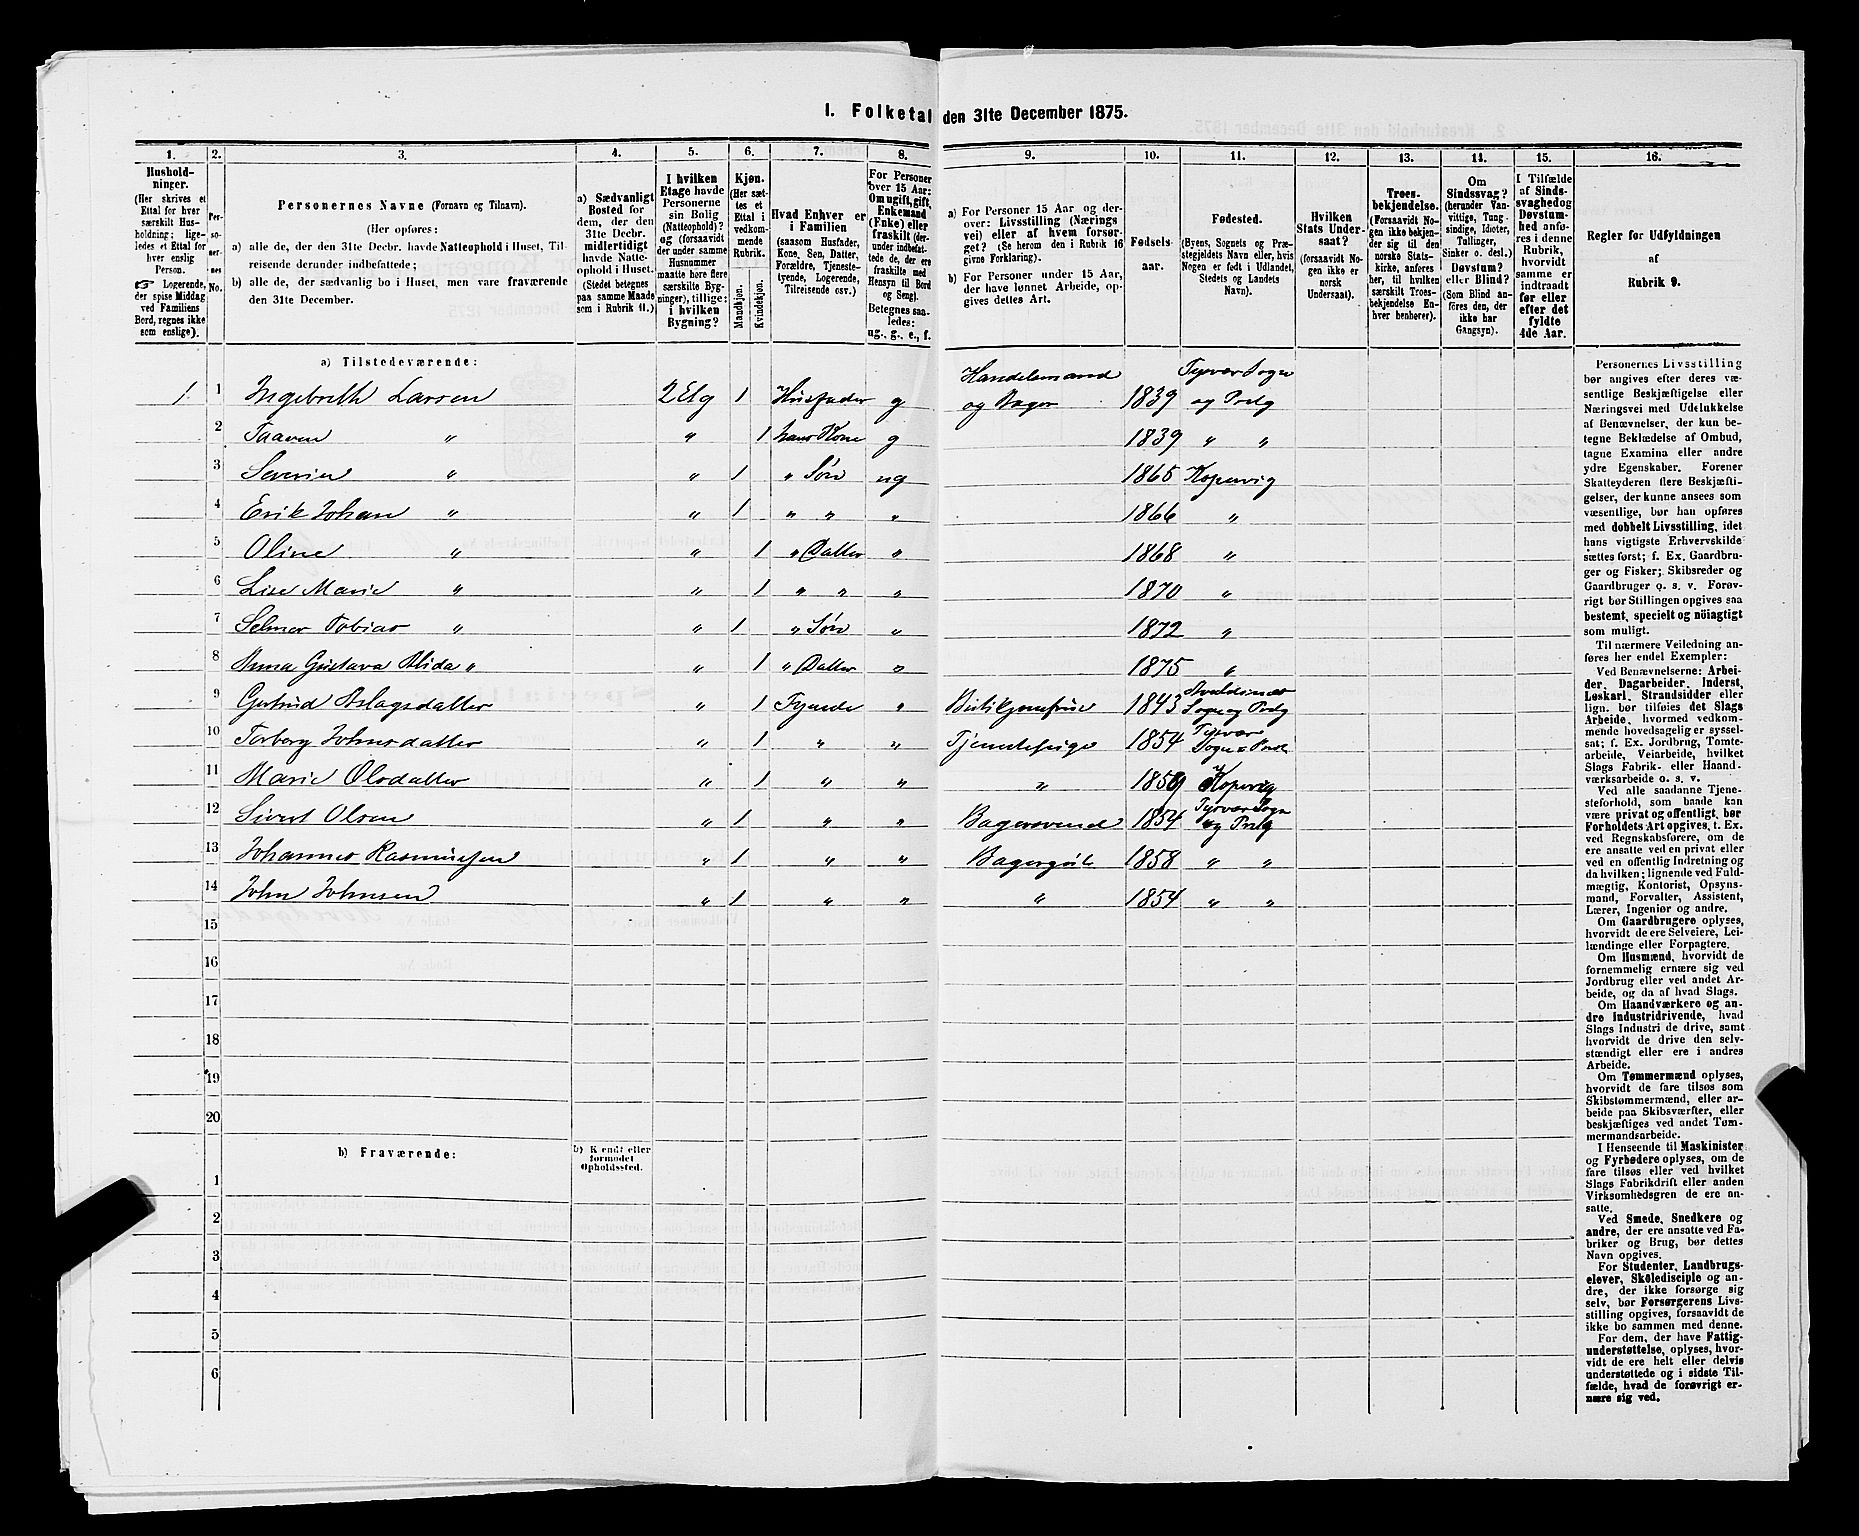 I. Folketal den 31te December 1875.
1. 2. 3. 4. 5. 6. 7. 8. 9. 10. 11. 12. 13. 14. 15. 16.
Husholdninger.
(Her skrives et
Ettal for hver
særskilt Husholdning;
ligeledes et Ettal for
hver enslig
Person.
Logerende,
der spise Middag
ved Familiens
Bord, regnes ikke
som enslige).
Personernes No.
Personernes Navne (Fornavn og Tilnavn).
(Her opføres:
a) alle de, der den 31te Decbr. havde Natteophold i Huset, Tilreisende derunder indbefattede;
b) alle de, der sædvanlig bo i Huset, men vare fraværende
den 31te December.
a) Sædvanligt
Bosted for
dem, der den
31te Decbr.
midlertidigt
havde Natteophold i Huset.
(Stedet betegnes
paa samme Maade
som i Rubrik 11.)
I hvilken
Etage havde
Personerne
sin Bolig
(Natteophold)?
og (forsaavidt
der under samme
Husnummer
maatte høre flere
særskilte Bygninger), tillige:
i hvilken
Bygning?
Kjøn.
(Her sættes et
Ettal i
vedkommende
Rubrik.
Mandkjøn.
Kvindekjøn.
Hvad Enhver er
i Familien
(saasom Husfader,
Kone, Søn, Datter,
Forældre, Tjenestetyende, Logerende,
Tilreisende osv.)
For Personer
over 15 Aar:
Om ugift, gift,
Enkemand
(Enke) eller
fraskilt (derunder indbefattede de, der ere
fraskilte med
Hensyn til Bord
og Seng).
Betegnes saaledes:
ug., g., e., f.
a) For Personer 15 Aar og derover: Livsstilling (Næringsvei) eller af hvem forsørget? (Se herom den i Rubrik 16
givne Forklaring).
b) For Personer under 15 Aar,
der have lønnet Arbeide, opgives dettes Art.
Fødselsaar.
Fødested.
(Byens, Sognets og Præstegjeldets Navn, eller, hvis
Nogen er født i Udlandet,
Stedets og Landets
Navn).
Hvilken
Stats Undersaat?
(forsaavidt Nogen ikke er
norsk
Undersaat).
Troesbekjendelse.
(Forsaavidt Nogen ikke bekjender sig til den
norske Statskirke, anføres
her, til hvilken
særskilt Troesbekjendelse Enhver henhører).
Om
Sindssvag?
(herunder Vanvittige, Tungsindige, Idioter,
Tullinger,
Sinker o. desl.)
Døvstum?
eller Blind?
(Som Blind anføres den, der
ikke har
Gangsyn).
I Tilfælde
af Sindssvaghed og
Døvstumhed anføres i denne
Rubrik,
hvorvidt
samme er
indtraadt
før eller
efter det
fyldte
4de Aar.
Regler for Udfyldningen
af
Rubrik 9.
a) Tilstedeværende:
1 1 Ingebreth Larsen 2 Etg 1 Husfader g Handelsmand og Bager 1839 Tysvær Sogn og Prstg
2 Taaven " " 1 hans Kone g 1839 " "
3 Severin " " 1 " Søn ug 1865 Kopervig
4 Erik Johan " " 1 " " " 1866 "
5 Oline " " 1 " Datter " 1868 "
6 Lise Marie " " 1 " " " 1870 "
7 Selmer Tobias " " 1 " Søn " 1872 "
8 Anna Gustava Alida " " 1 " Datter " 1875 "
9 Gertrud Aslagsdatter " 1 Tyende " 1843 Avaldsnes Sogn og Prstg
10 Torberg Johnsdatter " 1 " " Tjenestepige 1854 Tysvær Sogn
11 Marie Olsdatter " 1 " " " 1859 Kopervig
12 Sivert Olsen " 1 " " Bagersvend 1854 Tysvær Sogn og Prstg
13 Johannes Rasmussen " 1 " " 1858 " "
14 John Johnsen " 1 " " " 1854 " "
15
16
17
18
19
20
b) Fraværende:
b) Kjendt eller
formodet
Opholdssted.
1
2
3
4
5
6
Personernes Livsstilling
bør angives efter deres væsentlige Beskjæftigelse eller
Næringsvei med Udelukkelse
af Benævnelser, der kun betegne Beklædelse af Ombud,
tagne Examina eller andre
ydre Egenskaber. Forener
Skatteyderen flere Beskjæftigelser, der kunne ansees som
væsentlige, bør han opføres
med dobbelt Livsstilling, idet
hans vigtigste Erhvervskilde
sættes først; f. Ex. Gaardbruger og Fisker; Skibsreder og
Gaardbruger o. s. v. Forøvrigt bør Stillingen opgives saa
bestemt, specielt og nöiagtigt
som muligt.
Til nærmere Veiledning anføres her endel Exempler:
Ved Benævnelserne: Arbeider, Dagarbeider, Inderst,
Løskarl, Strandsidder eller
lign. bør tilføies det Slags
Arbeide, hvormed vedkommende hovedsagelig er sysselsat; f. Ex. Jordbrug, Tomtearbeide, Veiarbeide, hvilket
Slags Fabrik- eller Haandværksarbeide o. s. v.
Ved alle saadanne Tjenesteforhold, som baade kan
være privat og offentligt, bør
Forholdets Art opgives, t. Ex.
ved Regnskabsførere, om de
ere ansatte ved en privat eller
ved en offentlig Indretning og
da hvilken; lignende ved Fuldmægtig, Kontorist, Opsynsmand, Forvalter, Assistent,
Lærer, Ingeniør og andre.
Om Gaardbrugere oplyses,
hvorvidt de ere Selveiere, Leilændinge eller Forpagtere.
Om Husmænd, hvorvidt de
fornemmelig ernære sig ved
Jordbrug eller ved andet Arbeide, og da af hvad Slags.
Om Haandværkere og andre Industridrivende, hvad
Slags Industri de drive, samt
hvorvidt de drive den selvstændigt eller ere i andres
Arbeide.
Om Tømmermænd oplyses,
hvorvidt de fare tilsøs som
Skibstømmermænd, eller arbeide paa Skibsværfter, eller
beskjæftiges ved andet Tømmermandsarbeide.
I Henseende til Maskinister
og Fyrbødere oplyses, om de
fare tilsøs eller ved hvilket
Slags Fabrikdrift eller anden
Virksomhedsgren de ere ansatte.
Ved Smede, Snedkere og
andre, der ere ansatte ved Fabriker og Brug, bør dettes
Navn opgives.
For Studenter, Landbrugselever, Skoledisciple og andre, der ikke forsørge sig
selv, bør Forsørgerens Livsstilling opgives, forsaavidt de
ikke bo sammen med denne.
For dem, der have Fattigunderstøttelse, oplyses, hvorvidt de ere helt eller delvis
understøttede og i sidste Tilfælde, hvad de forøvrigt ernære sig ved.